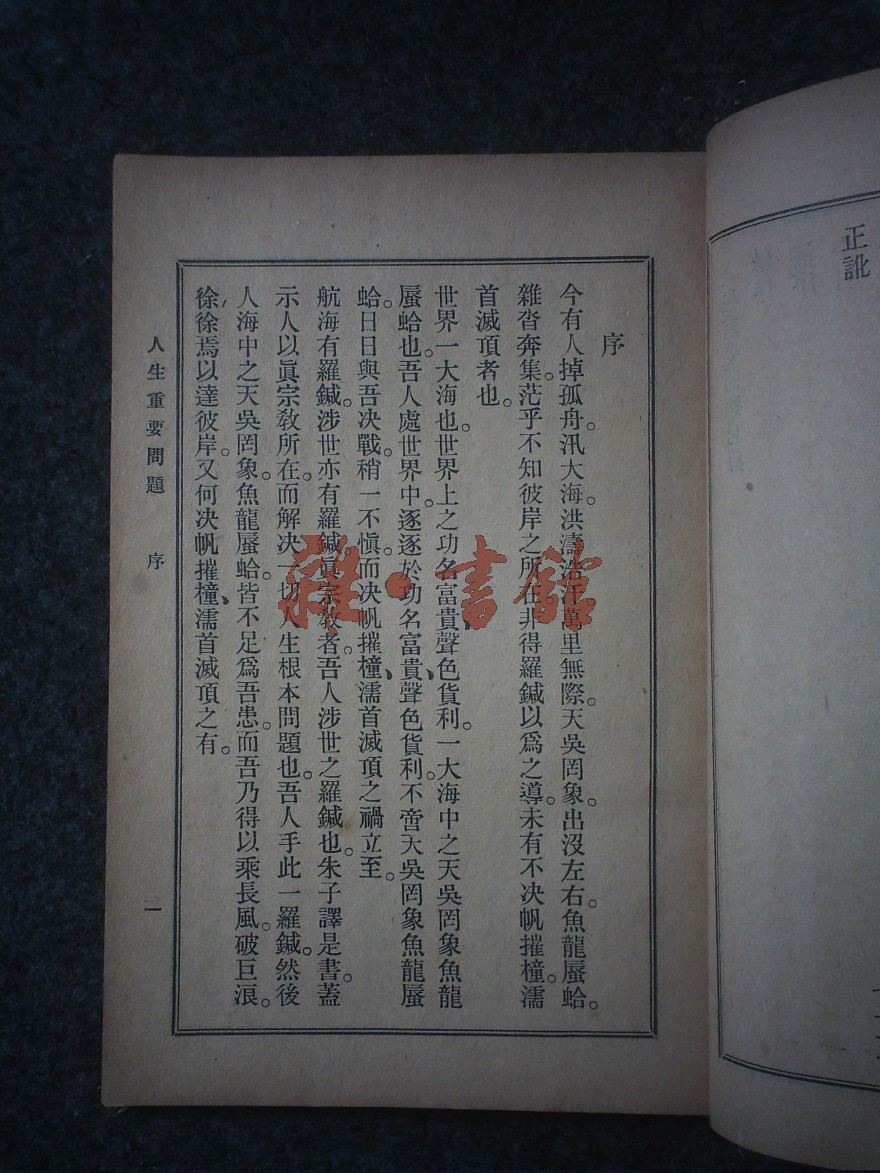 正訛
序
今有人掉孤舟。汛大海。洪濤浩汗。萬里無際。天吳罔象。出沒左右。魚龍蜃蛤。
雜沓奔集。茫乎不知彼岸之所在。非得羅鍼以爲之導。未有不决帆摧橦。濡
首滅頂者也。
世界一大海也。世界上之功名富貴、聲色貨利。一大海中之天吳罔象魚龍
蜃蛤也。吾人處世界中。逐逐於功名富貴、聲色貨利。不啻天吳罔象魚龍蜃
蛤。日日與吾决戰。稍一不愼。而决帆摧橦、濡首滅頂之禍立至。
航海有羅鍼。涉世亦有羅鍼。眞宗敎者。吾人涉世之羅鍼也。朱子譯是書。蓋
示人以眞宗敎所在。而解决一切人生根本問題也。吾人手此一羅鍼。然後
人海中之天吳罔象。魚龍蜃蛤。皆不足爲吾患。而吾乃得以乘長風。破巨浪。
徐徐焉以達彼岸。又何决帆摧橦、濡首滅頂之有。
人生重要問題 序 一
雜·書館